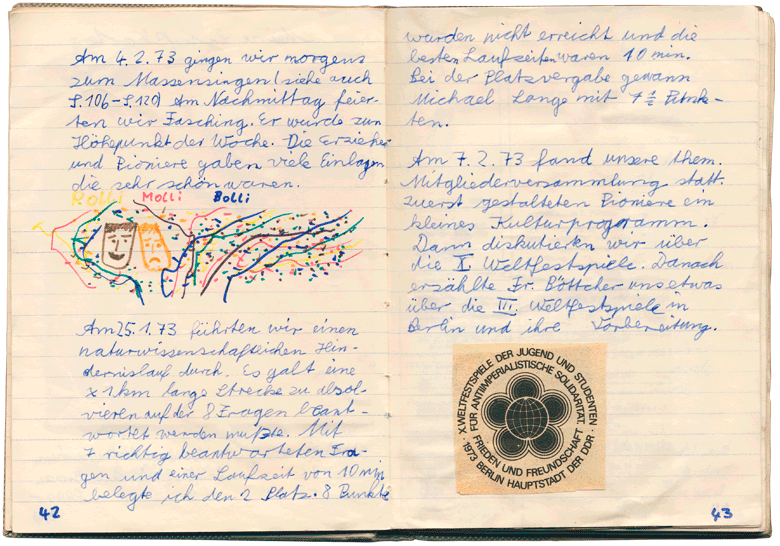 Am 4.2.73 gingen wir morgens
zum Massensingen (siehe auch
S.106-S.120) Am Nachmittag feier-
ten wir Fasching. Er wurde zum
Höhepunkt der Woche. Die Erzieher
und Pioniere gaben viele Einlagen
die sehr schön waren.
Rolli Molli Bolli
Am 25.1.73 führten wir einen
naturwissenschaftlichen Hin-
dernislauf durch. Es galt eine
x 1km lange Strecke zu absol-
vieren auf der 8 Fragen beant-
wortet werden mußte. Mit
7 richtig beantworteten Fra-
gen und einer Laufzeit von 10 min
belegte ich den 2 Platz. 8 Punkte
42
wurden nicht erreicht und die
besten Laufzeiten waren 10 min.
Bei der Platzvergabe gewann
Michael Lange mit 7 1/2
ten.
Am 7.2.73 fand unsere them.
Mitgliederversammlung statt.
zuerst gestalteten Pioniere ein
kleines Kulturprogramm.
Dann diskutierten wir über
die X Weltfestspiele. Danach
erzählte Fr. Böttcher uns etwas
über die III. Weltfestspiele in
Berlin und ihre Vorbereitung.
· X. WELTFESTSPIELE DER JUGEND UND STUDENTEN ·
FÜR ANTIIMPERIALISTISCHE SOLIDARITÄT,
FRIEDEN UND FREUNDSCHAFT
1973 BERLIN HAUPTSTADT DER DDR
43